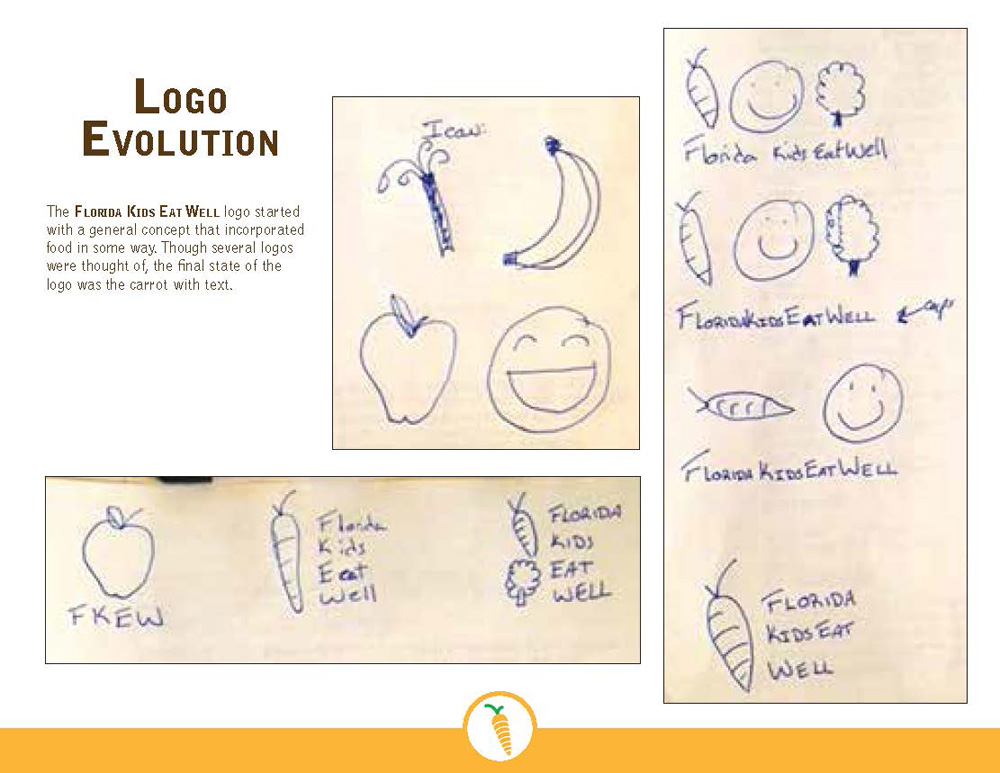 LOGO
EVOLUTION
The FLORIDA KIDS EAT WELL logo started
with a general concept that incorporated
food in some way. Though several logos
were thought of, the final state of the
logo was the carrot with text.
Icon:
FKEW
Florida
Kids
Eat
Well
FLORIDA
KIDS
EAT
WELL
Florida Kids Eat Well
FLORIDAKIDSEATWELL
caps
FLORIDAKIDSEATWELL
FLORIDA
KIDSEAT
WELL